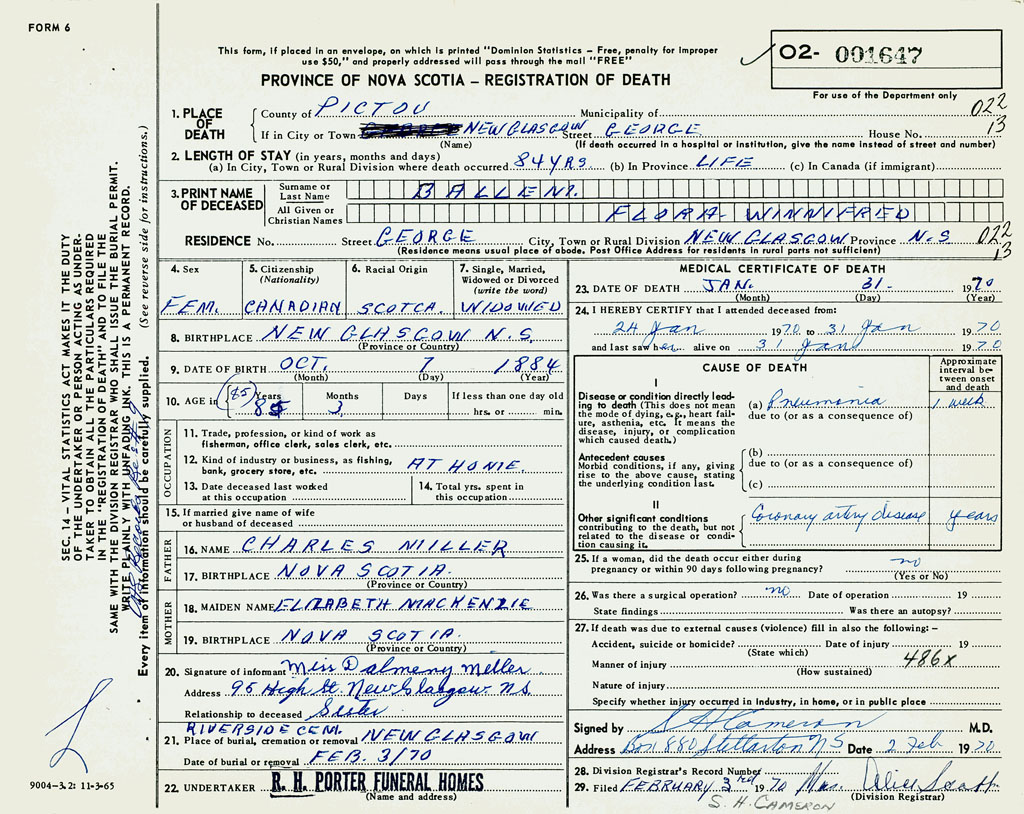 FORM 6
This form, if placed in an envelope, on which is printed "Dominion Statistics – Free, penalty for improper
use $50," and properly addressed will pass through the mail "FREE"
PROVINCE OF NOVA SCOTIA – REGISTRATION OF DEATH
O2- 001647
For use of the Department only
022
13
1. PLACE OF DEATH
County of PICTOU Municipality of
If in City or Town NEW GLASGOW Street GEORGE House No.
(Name) (If death occurred in a hospital or institution, give the name instead of street and number)
2. LENGTH OF STAY (in years, months and days)
(a) In City, Town or Rural Division where death occurred 84 YRS (b) In Province LIFE (c) In Canada (if immigrant)
3. PRINT NAME OF DECEASED
Surname or Last Name
All Given or Christian Names FLORA WINNIFRED
RESIDENCE No. Street GEORGE City, Town or Rural Division NEW GLASGOW Province N.S 022
13
(Residence means usual place of abode. Post Office Address for residents in rural parts not sufficient)
4. Sex FEM.
5. Citizenship (Nationality) CANADIAN
6. Racial Origin SCOTCH.
7. Single, Married, Widowed or Divorced (write the word) WIDOWED
8. BIRTHPLACE NEW GLASGOW N.S.
(Province or Country)
9. DATE OF BIRTH OCT. 7 1884
(Month) (Day) (Year)
10. AGE in (85) Years 85 Months 3 Days If less than one day old
hrs. or min.
OCCUPATION
11. Trade, profession, or kind of work as
fisherman, office clerk, sales clerk, etc.
12. Kind of industry or business, as fishing,
bank, grocery store, etc. AT HOME.
13. Date deceased last worked
at this occupation
14. Total yrs. spent in
this occupation
15. If married give name of wife
or husband of deceased
FATHER
16. NAME CHARLES MILLER
17. BIRTHPLACE NOVA SCOTIA.
(Province or Country)
MOTHER
18. MAIDEN NAME ELIZABETH MACKENZIE
19. BIRTHPLACE NOVA SCOTIA.
(Province or Country)
20. Signature of informant Miss Dalmeny Miller
Address 95 High St. New Glasgow N.S.
Relationship to deceased Sister
RIVERSIDE CEM.
21. Place of burial, cremation or removal NEW GLASGOW
Date of burial or removal FEB. 3/70
22. UNDERTAKER R. H. PORTER FUNERAL HOMES
(Name and address)
MEDICAL CERTIFICATE OF DEATH
23. DATE OF DEATH JAN. 31. 1970
(Month) (Day) (Year)
24. I HEREBY CERTIFY that I attended deceased from:
24 Jan 1970 to 31 Jan 1970
and last saw her alive on 31 Jan 1970
CAUSE OF DEATH
Approximate interval between onset and death
I
Disease or condition directly leading to death (This does not mean the mode of dying, e.g., heart failure, asthenia, etc. It means the disease, injury, or complication which caused death.)
(a) Pneumonia 1 week
due to (or as a consequence of)
Antecedent causes
Morbid conditions, if any, giving rise to the above cause, stating the underlying condition last.
(b)
due to (or as a consequence of)
(c)
II
Other significant conditions
contributing to the death, but not related to the disease or condition causing it.
Coronary artery disease years
25. If a woman, did the death occur either during
pregnancy or within 90 days following pregnancy? no
(Yes or No)
26. Was there a surgical operation? no Date of operation 19
State findings Was there an autopsy?
27. If death was due to external causes (violence) fill in also the following: –
Accident, suicide or homicide? Date of injury 19
(State which) 486X
Manner of injury
(How sustained)
Nature of injury
Specify whether injury occurred in industry, in home, or in public place
Signed by S H Cameron M.D.
Address Box 880 Stellarton NS Date 2 Feb 1970
28. Division Registrar's Record Number
29. Filed FEBRUARY 3rd 1970 Mrs. Alice
(Division Registrar)
S. H. CAMERON
SEC. 14 – VITAL STATISTICS ACT MAKES IT THE DUTY
OF THE UNDERTAKER OR PERSON ACTING AS UNDER-
TAKER TO OBTAIN ALL THE PARTICULARS REQUIRED
IN THE "REGISTRATION OF DEATH" AND TO FILE THE
SAME WITH THE DIVISION REGISTRAR WHO SHALL ISSUE THE BURIAL PERMIT.
WRITE PLAINLY WITH UNFADING INK. THIS IS A PERMANENT RECORD.
Every item of information should be carefully supplied. (See reverse side for instructions.)
9004-3.2: 11-3-65